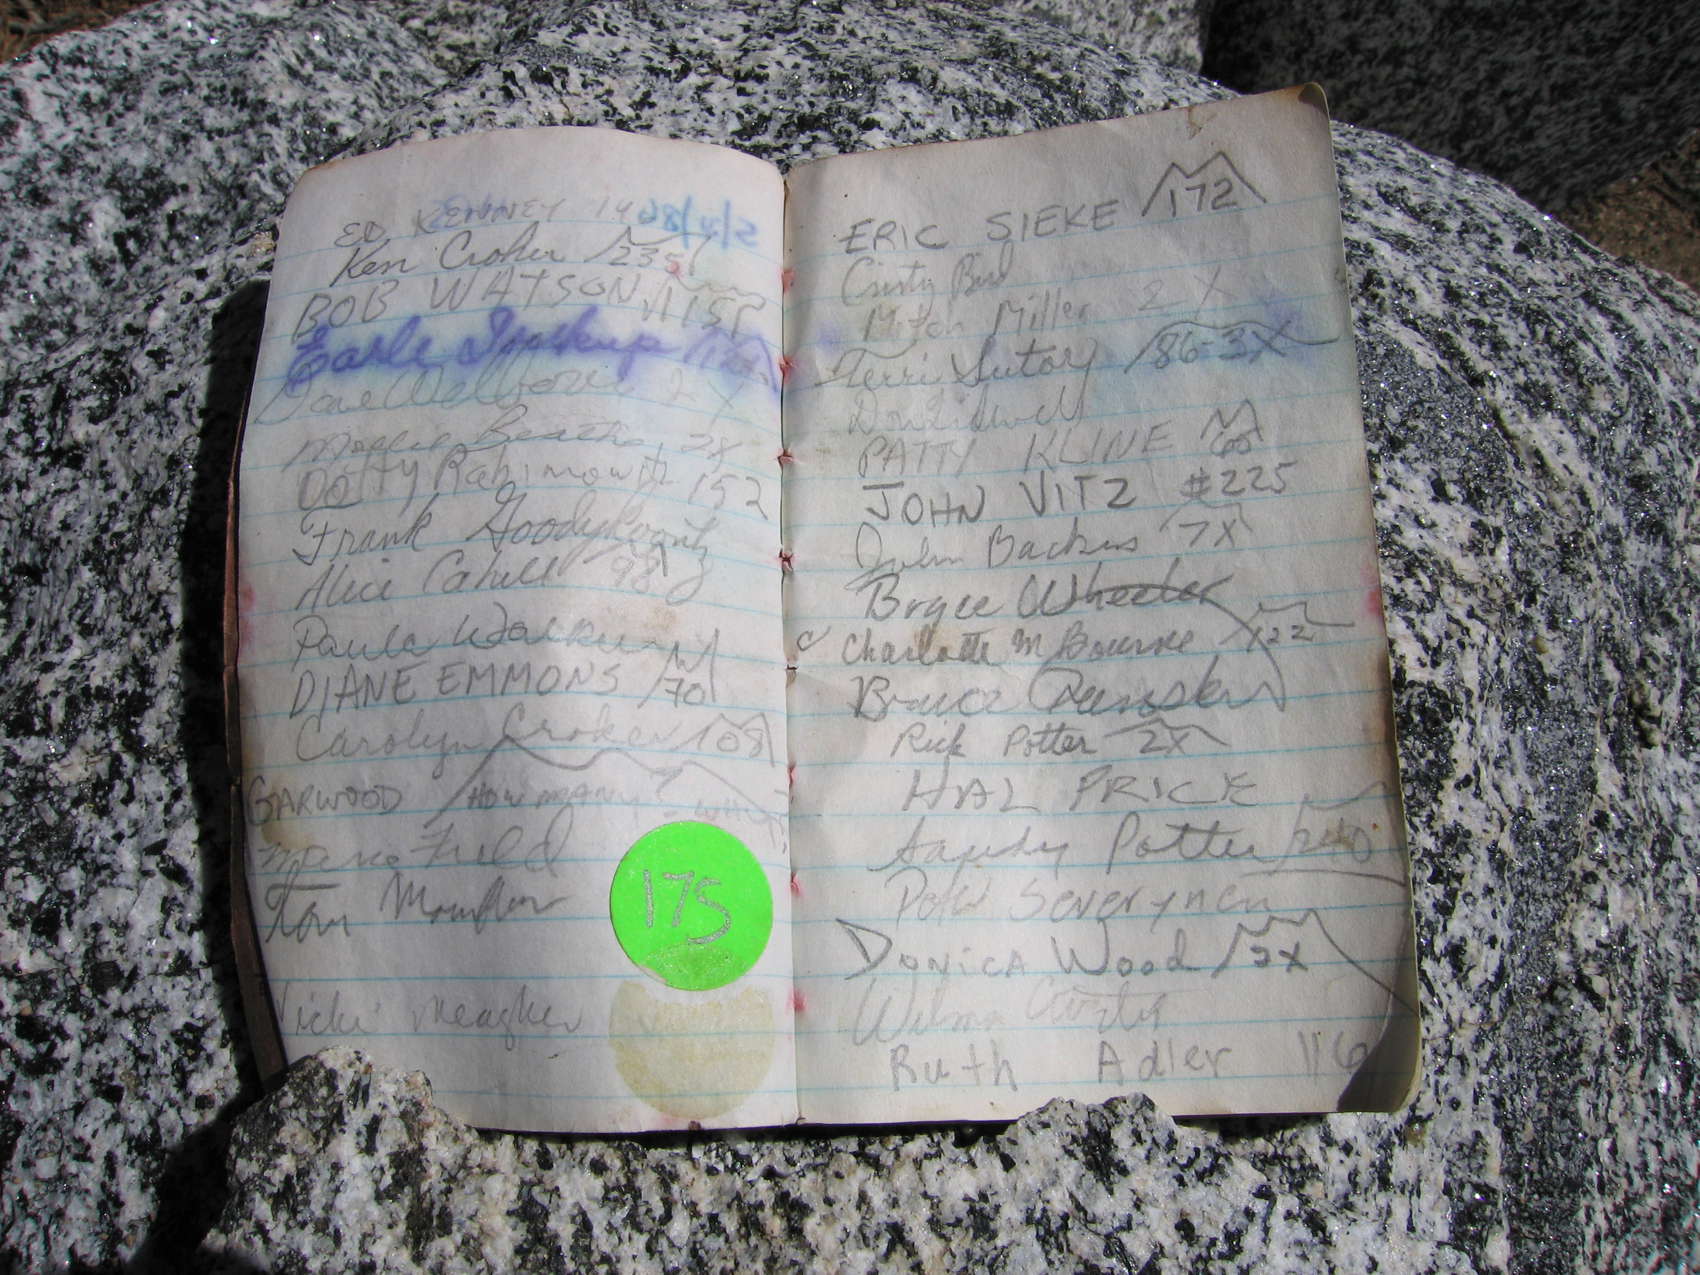 ED KENNEY 14
Ken Croker 235
BOB WATSON 115
Earle
Dave Welbourn 2X
Mollie 2X
Dotty Rabinowitz 152
Frank Goodykoontz
Alice Cahill 98
Paula
DIANE EMMONS 70
Carolyn Croker 108
GARWOOD HOW MANY?
Field
Tom
175
Vicki Meagher
ERIC SIEKE 172
Cristy Bird
Mitch Miller 2X
Terri Sutor 86-3X
PATTY KLINE
JOHN VITZ #225
John Backus 7X
Bryce Wheeler
Charlotte M Bourne 122
Bruce
Rick Potter 2X
HAL PRICE
Sandy Potter 240
Severynen
DONICA WOOD 2X
Wilma Curtis
Ruth Adler 116